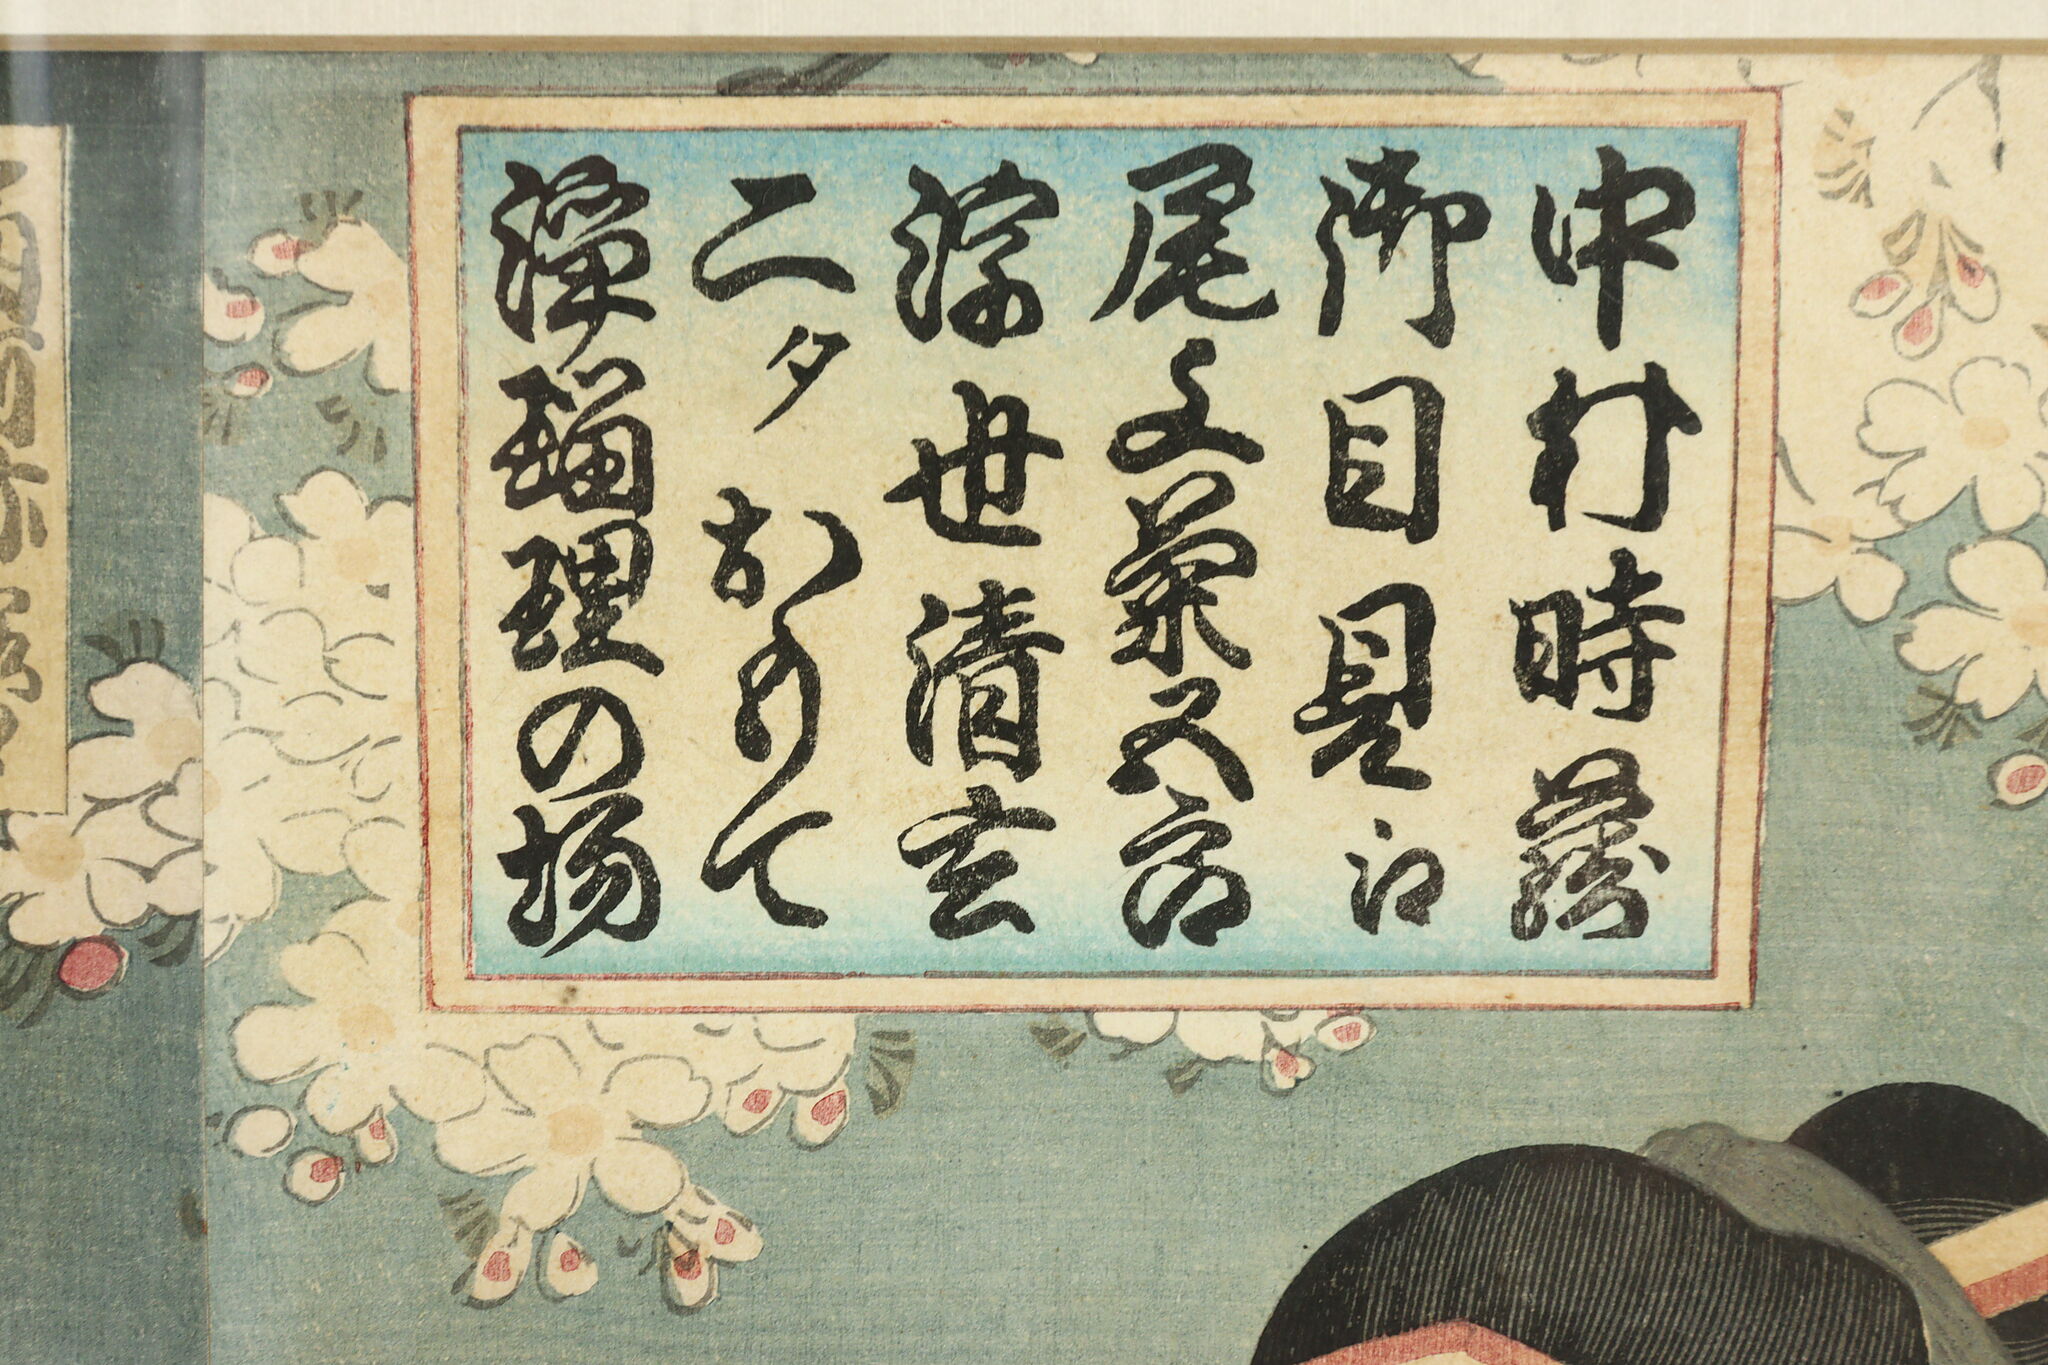 中村時蔵
御目見江
尾上菊五郎
浮世清玄
二タおもて
浄瑠理の場